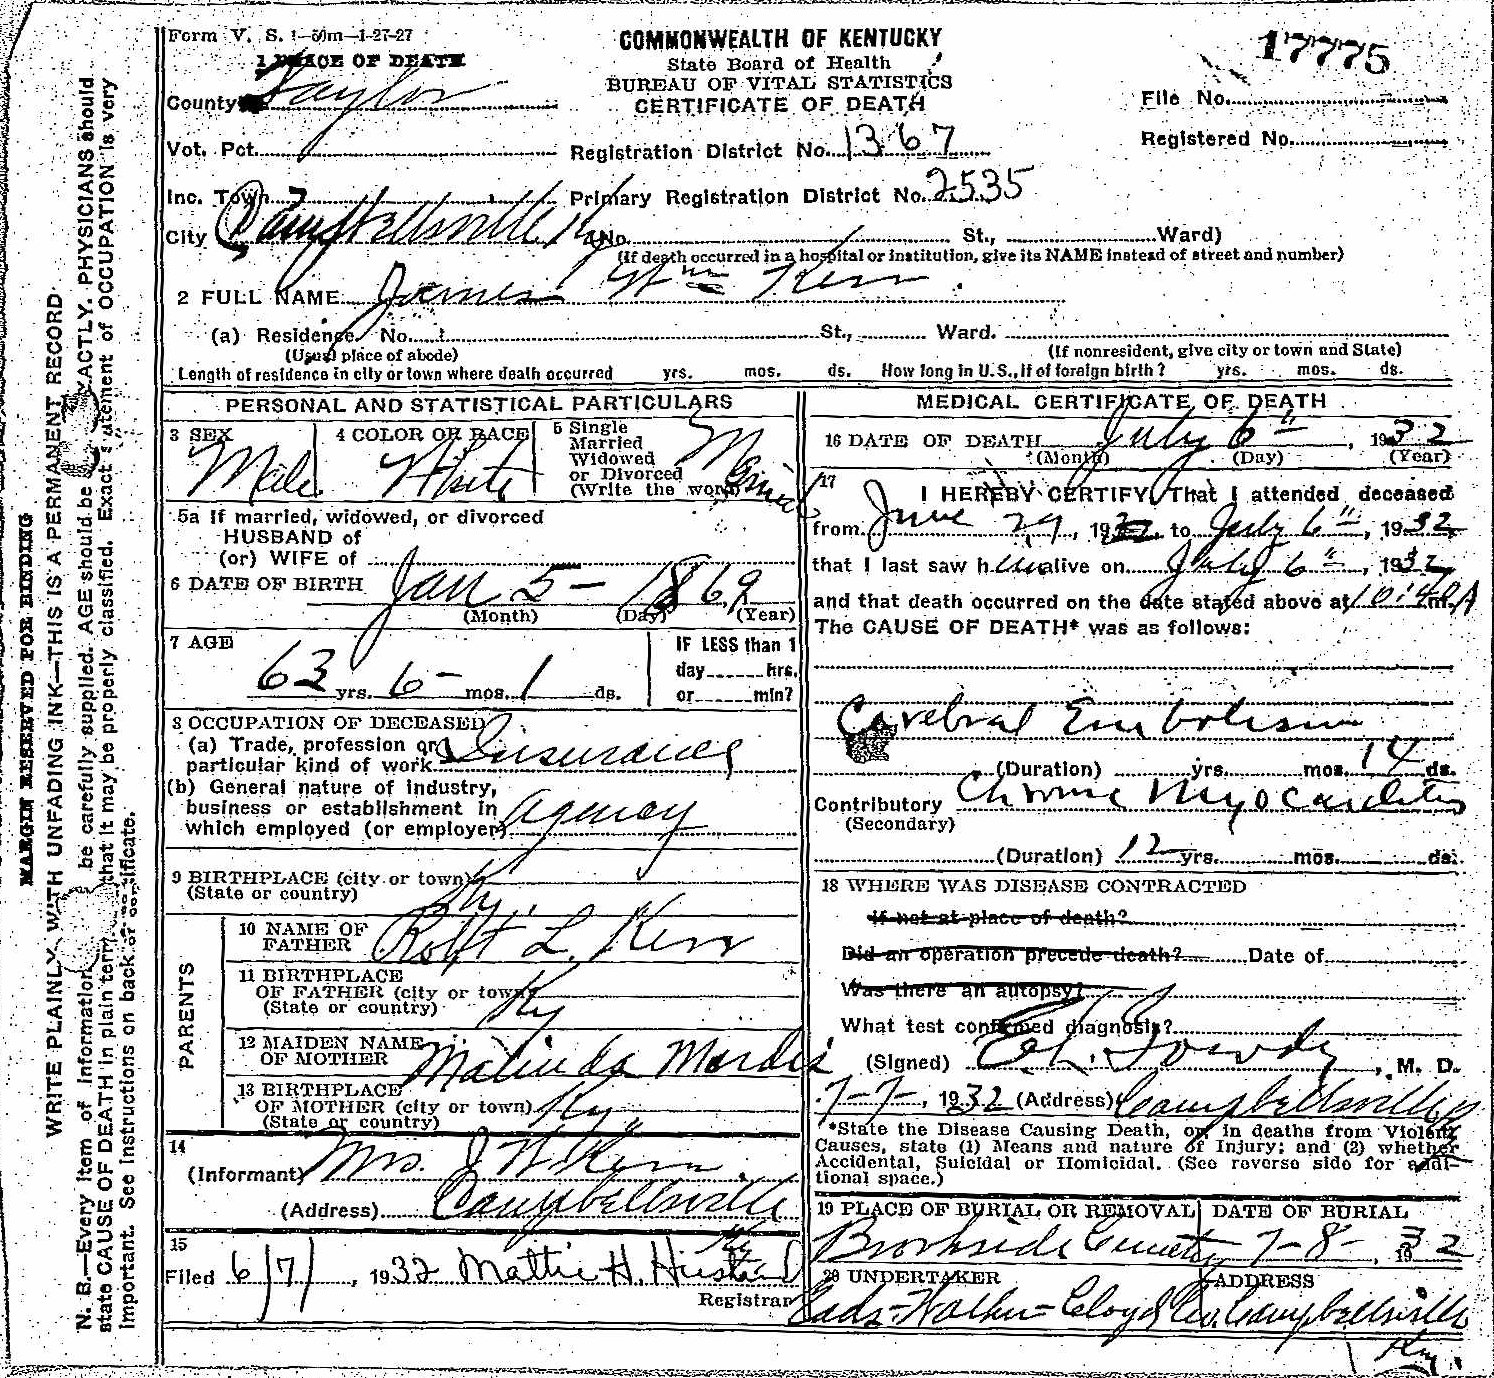 Form V. S. 1—50m—1-27-27
COMMONWEALTH OF KENTUCKY
State Board of Health
BUREAU OF VITAL STATISTICS
CERTIFICATE OF DEATH
17775
1 PLACE OF DEATH
County Taylor
File No.
Vot. Pct.
Registration District No. 1367
Registered No.
Inc. Town
Primary Registration District No. 2535
City Campbellsville Ky (No. St., Ward)
(If death occurred in a hospital or institution, give its NAME instead of street and number)
2 FULL NAME James Wm Kerr
(a) Residence No. St., Ward.
(Usual place of abode) (If nonresident, give city or town and State)
Length of residence in city or town where death occurred yrs. mos. ds. How long in U.S., if of foreign birth? yrs. mos. ds.
PERSONAL AND STATISTICAL PARTICULARS
3 SEX
Male
4 COLOR OR RACE
White
5 Single
Married
Widowed
or Divorced
(Write the word)
5a If married, widowed, or divorced
HUSBAND of
(or) WIFE of
6 DATE OF BIRTH Jan 5 - 1869
(Month) (Day) (Year)
7 AGE
63 yrs. 6 - mos. 1 ds.
IF LESS than 1
day hrs.
or min?
8 OCCUPATION OF DECEASED
(a) Trade, profession or
particular kind of work Insurance
(b) General nature of industry,
business or establishment in
which employed (or employer) agency
9 BIRTHPLACE (city or town)
(State or country) Ky.
PARENTS
10 NAME OF
FATHER Robt L. Kerr
11 BIRTHPLACE
OF FATHER (city or town)
(State or country) Ky
12 MAIDEN NAME
OF MOTHER Malinda
13 BIRTHPLACE
OF MOTHER (city or town)
(State or country) Ky.
14
(Informant) Mrs. J W Kerr
(Address) Campbellsville
Ky
15
Filed 6/7/, 1932 Mattie H.
Registrar
MEDICAL CERTIFICATE OF DEATH
16 DATE OF DEATH July 6", 1932
(Month) (Day) (Year)
17
I HEREBY CERTIFY, That I attended deceased
from June 29, 1932, to July 6", 1932,
that I last saw him alive on July 6", 1932,
and that death occurred on the date stated above at 10:40 m. A
The CAUSE OF DEATH* was as follows:
Cerebral Embolism
(Duration) yrs. mos. 14 ds.
Contributory Chronic Myocarditis
(Secondary)
(Duration) 12 yrs. mos. ds.
18 WHERE WAS DISEASE CONTRACTED
if not at place of death?
Did an operation precede death? Date of
Was there an autopsy?
What test confirmed diagnosis?
(Signed) , M. D.
7-7-, 1932 (Address) Campbellsville Ky
*State the Disease Causing Death, or, in deaths from Violent
Causes, state (1) Means and nature of Injury; and (2) whether
Accidental, Suicidal or Homicidal. (See reverse side for addi-
tional space.)
19 PLACE OF BURIAL OR REMOVAL
Brookside Cemetery
DATE OF BURIAL
7-8-, 1932
20 UNDERTAKER
ADDRESS
Campbellsville
Ky.
MARGIN RESERVED FOR BINDING
WRITE PLAINLY, WITH UNFADING INK—THIS IS A PERMANENT RECORD.
N. B.—Every item of information be carefully supplied. AGE should be EXACTLY. PHYSICIANS should
state CAUSE OF DEATH in plain term that it may be properly classified. Exact statement of OCCUPATION is very
important. See instructions on back of certificate.